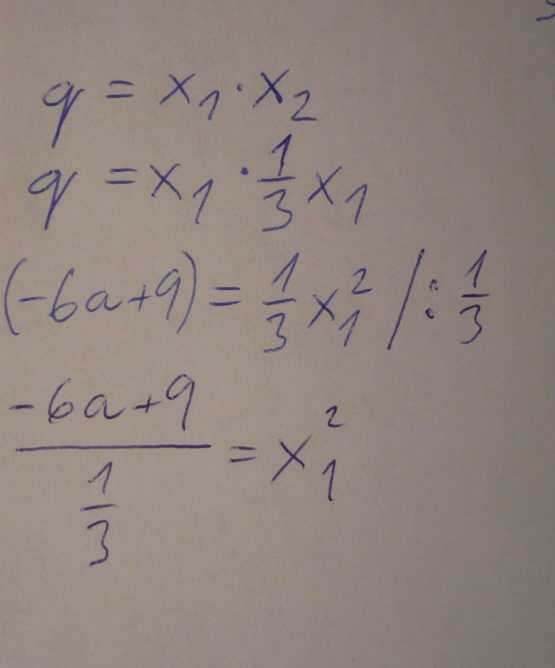 q = x₁ · x₂
q = x₁ · 1/3 x₁
(-6a+9) = 1/3 x₁² / : 1/3
(-6a+9)/(1/3) = x₁²